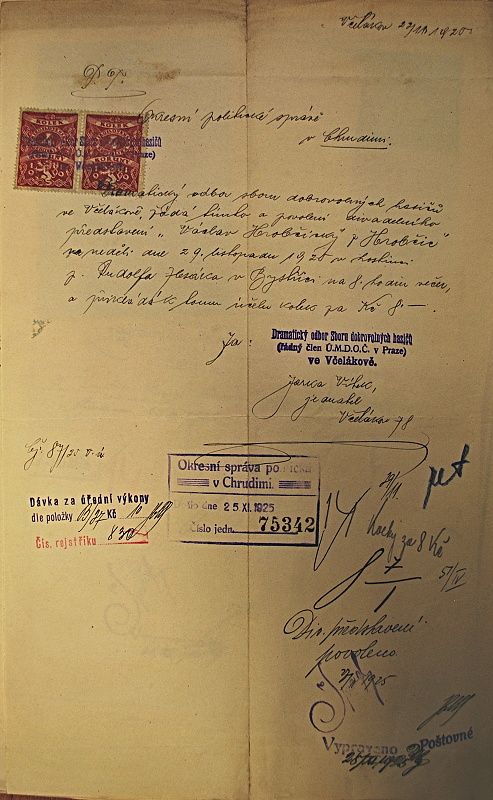 Včelákov 23/11 1925
Okresní politické správě
v Chrudimi.
KOLEK KOLEK
Dramatický odbor sboru dobrovolných hasičů
ve Včelákově, žádá tímto o povolení divadelního
představení „Václav Hrobčický z Hrobčic"
na neděli dne 29. listopadu 1925 v hostinci
p. Rudolfa v Bystřici na 8. hodin večer,
a přikládá k tomu účelu kolek za Kč 8 —
Za:
Dramatický odbor Sboru dobrovolných hasičů
(řádný člen Ú.M.D.O.Č. v Praze)
ve Včelákově.
Jarka Vítek,
jednatel
Včelákov 78
Okresní správa politická
v Chrudimi.
došlo dne 25 XI. 1925
Číslo jedn. 75342
Dávka za úřední výkony
dle položky Kč
Čís. rejstříku 830
kolky za 8 Kč
Div. představení
povoleno
Vypraveno Poštovné